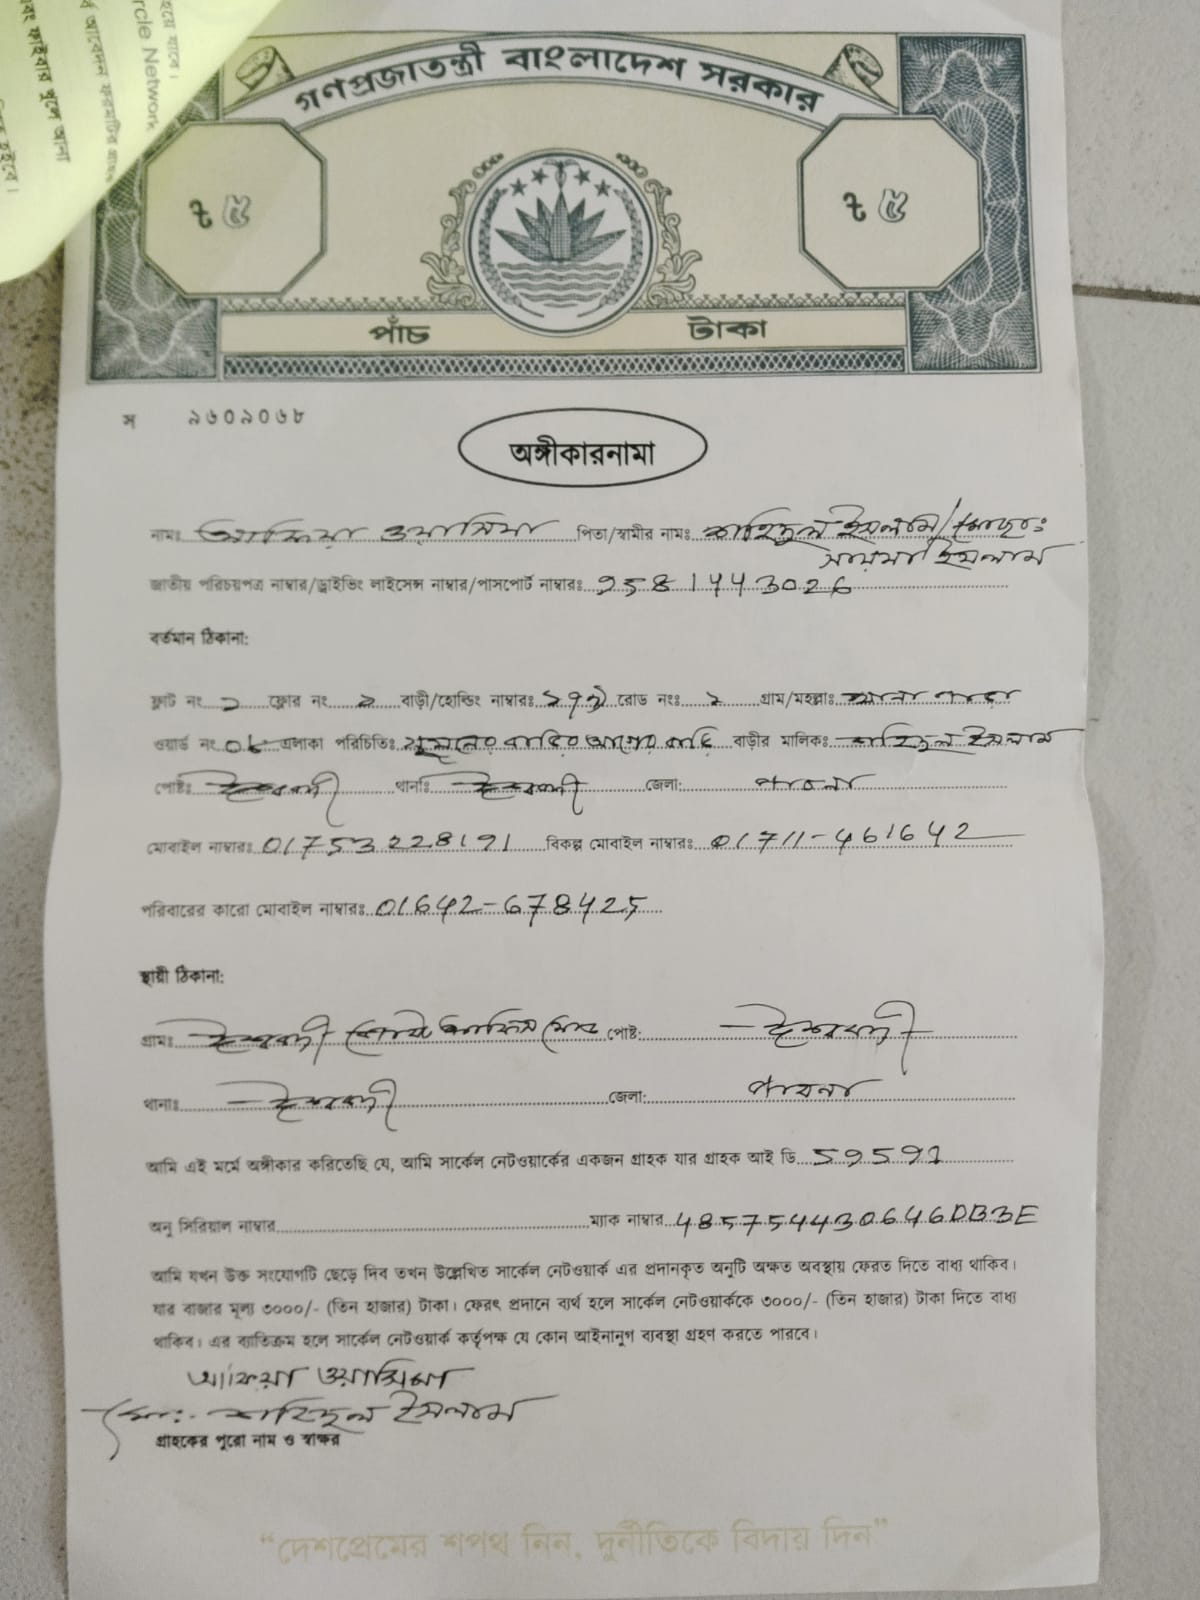 হয়ে যাবে।
rcle Network
র্ব আবেদন ফরমটির
এবং ফাইবার খুলে আনা
হইবে।
গণপ্রজাতন্ত্রী বাংলাদেশ সরকার
৳ ৫ ৳ ৫
পাঁচ টাকা
স ৯৬০৯০৬৮
অঙ্গীকারনামা
নামঃ আফিয়া ওয়াসিমা পিতা/স্বামীর নামঃ শাহিদুল ইসলাম/
সায়মা ইসলাম
জাতীয় পরিচয়পত্র নাম্বার/ড্রাইভিং লাইসেন্স নাম্বার/পাসপোর্ট নাম্বারঃ 9581443026
বর্তমান ঠিকানা:
ফ্লাট নং ১ ফ্লোর নং ২ বাড়ী/হোল্ডিং নাম্বারঃ রোড নংঃ ১ গ্রাম/মহল্লাঃ
ওয়ার্ড নং ০৮ এলাকা পরিচিতিঃ বাড়ির আগের বাড়ি বাড়ীর মালিকঃ শাহিদুল ইসলাম
পোষ্টঃ ঈশ্বরদী থানাঃ ঈশ্বরদী জেলা: পাবনা
মোবাইল নাম্বারঃ 01753228191 বিকল্প মোবাইল নাম্বারঃ 01711-461642
পরিবারের কারো মোবাইল নাম্বারঃ 01642-678425
স্থায়ী ঠিকানা:
গ্রামঃ ঈশ্বরদী পোষ্ট: ঈশ্বরদী
থানাঃ ঈশ্বরদী জেলা: পাবনা
আমি এই মর্মে অঙ্গীকার করিতেছি যে, আমি সার্কেল নেটওয়ার্কের একজন গ্রাহক যার গ্রাহক আই ডি 59591
অনু সিরিয়াল নাম্বার ম্যাক নাম্বার 4857544430646DB3E
আমি যখন উক্ত সংযোগটি ছেড়ে দিব তখন উল্লেখিত সার্কেল নেটওয়ার্ক এর প্রদানকৃত অনুটি অক্ষত অবস্থায় ফেরত দিতে বাধ্য থাকিব।
যার বাজার মূল্য ৩০০০/- (তিন হাজার) টাকা। ফেরৎ প্রদানে ব্যর্থ হলে সার্কেল নেটওয়ার্ককে ৩০০০/- (তিন হাজার) টাকা দিতে বাধ্য
থাকিব। এর ব্যাতিক্রম হলে সার্কেল নেটওয়ার্ক কর্তৃপক্ষ যে কোন আইনানুগ ব্যবস্থা গ্রহণ করতে পারবে।
আফিয়া ওয়াসিমা
মোঃ শাহিদুল ইসলাম
গ্রাহকের পুরো নাম ও স্বাক্ষর
“দেশপ্রেমের শপথ নিন, দুর্নীতিকে বিদায় দিন”